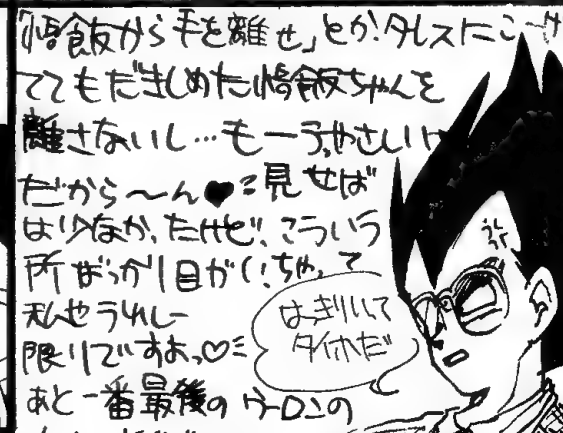 「悟飯から手を離せ」とか!タレスにこーげ
てもだきしめた悟飯ちゃんを
離さないし…もーうやさしい
だから〜ん♥見せば
は少なかったけど、こういう
所ばっかり目がいっちゃって
私もうれしー
限りですよっ♡
あと一番最後のウーロンの
はっきりいって
タイホだ